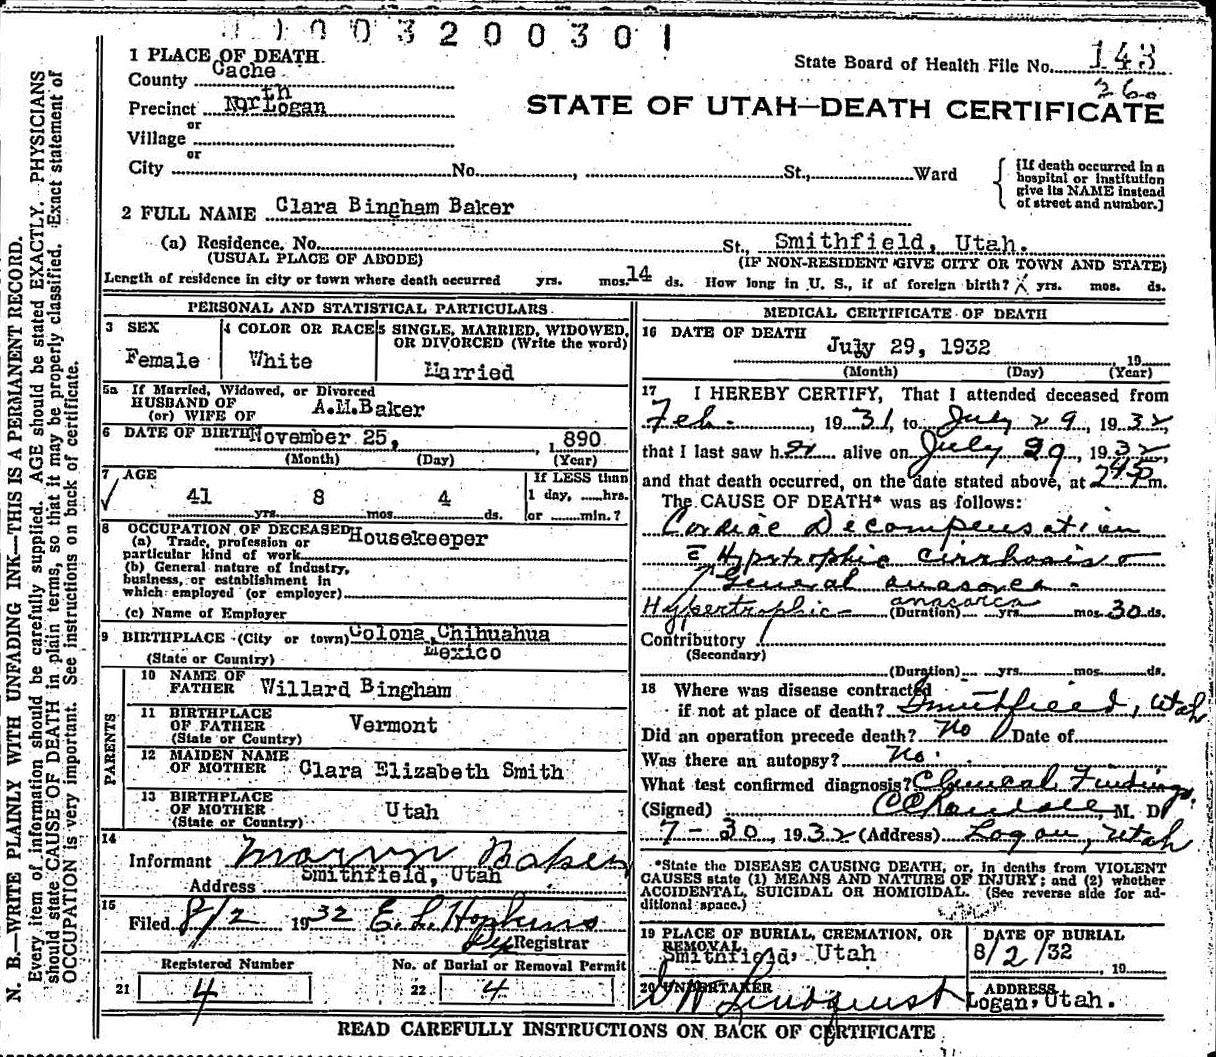 1 0 0 3 2 0 0 3 0 1
1 PLACE OF DEATH.
County Cache
Precinct North Logan
or
Village
or
City No. , St., Ward
State Board of Health File No. 143
260
STATE OF UTAH—DEATH CERTIFICATE
[If death occurred in a
hospital or institution
give its NAME instead
of street and number.]
2 FULL NAME Clara Bingham Baker
(a) Residence. No. St., Smithfield, Utah.
(USUAL PLACE OF ABODE) (IF NON-RESIDENT GIVE CITY OR TOWN AND STATE)
Length of residence in city or town where death occurred yrs. mos. 14 ds. How long in U. S., if of foreign birth? yrs. mos. ds.
PERSONAL AND STATISTICAL PARTICULARS
3 SEX
Female
4 COLOR OR RACE
White
5 SINGLE, MARRIED, WIDOWED,
OR DIVORCED (Write the word)
Married
5a If Married, Widowed, or Divorced
HUSBAND OF
(or) WIFE OF A.M.Baker
6 DATE OF BIRTH November 25, , 1890
(Month) (Day) (Year)
7 AGE
41 yrs. 8 mos. 4 ds.
If LESS than
1 day, ......hrs.
or .......min.?
8 OCCUPATION OF DECEASED Housekeeper
(a) Trade, profession or
particular kind of work
(b) General nature of industry,
business, or establishment in
which employed (or employer)
(c) Name of Employer
9 BIRTHPLACE (City or town) Colona, Chihuahua
(State or Country) Mexico
PARENTS
10 NAME OF
FATHER Willard Bingham
11 BIRTHPLACE
OF FATHER Vermont
(State or Country)
12 MAIDEN NAME
OF MOTHER Clara Elizabeth Smith
13 BIRTHPLACE
OF MOTHER Utah
(State or Country)
14
Informant Marvin Baker
Address Smithfield, Utah
15
Filed 8/2 1932 E. L. Hopkins
Registrar
Registered Number
21 4
No. of Burial or Removal Permit
22 4
MEDICAL CERTIFICATE OF DEATH
16 DATE OF DEATH
July 29, 1932 19
(Month) (Day) (Year)
17 I HEREBY CERTIFY, That I attended deceased from
Feb. , 1931, to July 29, 1932,
that I last saw her alive on July 29, 1932,
and that death occurred, on the date stated above, at 245p m.
The CAUSE OF DEATH* was as follows:
Cardiac Decompensation
Hypertrophic cirrhosis
General anasarca
Hypertrophic anasarca (Duration) yrs. mos. 30 ds.
Contributory
(Secondary)
(Duration) yrs. mos. ds.
18 Where was disease contracted
if not at place of death? Smithfield, Utah
Did an operation precede death? No Date of
Was there an autopsy? No.
What test confirmed diagnosis? Clinical Findings.
(Signed) C C Randall, M. D.
7-30, 1932 (Address) Logan, Utah
*State the DISEASE CAUSING DEATH, or, in deaths from VIOLENT
CAUSES state (1) MEANS AND NATURE OF INJURY; and (2) whether
ACCIDENTAL, SUICIDAL OR HOMICIDAL. (See reverse side for ad-
ditional space.)
19 PLACE OF BURIAL, CREMATION, OR
REMOVAL
Smithfield, Utah
DATE OF BURIAL
8/2/32
, 19
20 UNDERTAKER
Lindquist
ADDRESS
Logan, Utah.
READ CAREFULLY INSTRUCTIONS ON BACK OF CERTIFICATE
N. B.—WRITE PLAINLY WITH UNFADING INK—THIS IS A PERMANENT RECORD.
Every item of information should be carefully supplied. AGE should be stated EXACTLY. PHYSICIANS
should state CAUSE OF DEATH in plain terms, so that it may be properly classified. Exact statement of
OCCUPATION is very important. See instructions on back of certificate.